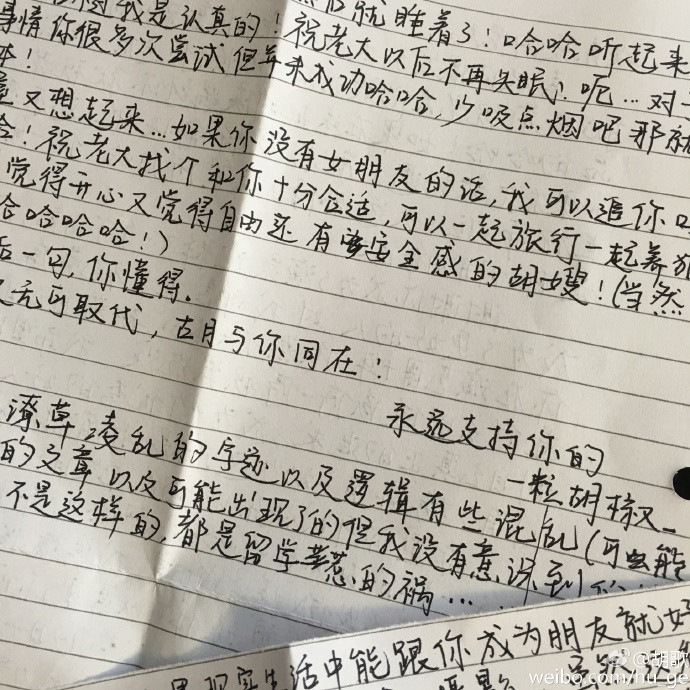 我是认真的!
然后就睡着了!哈哈听起来
事情你很多次尝试但并未成功哈哈,少吸点烟吧那就
祝老大以后不再失眠!呃…对
又想起来…如果你没有女朋友的话,我可以追你
!祝老大找个和你十分合适,可以一起旅行一起养
觉得开心又觉得自由还有安全感的胡嫂!(当然
哈哈哈哈!)
一句,你懂得.
无可取代,古月与你同在!
永远支持你的
一粒胡椒
潦草凌乱的字迹以及逻辑有些混乱(可能
的文章以及可能出现了的但我没有意识到的
不是这样的,都是留学惹的祸…
现实生活中能跟你成为朋友就好
@胡歌
weibo.com/hu_ge